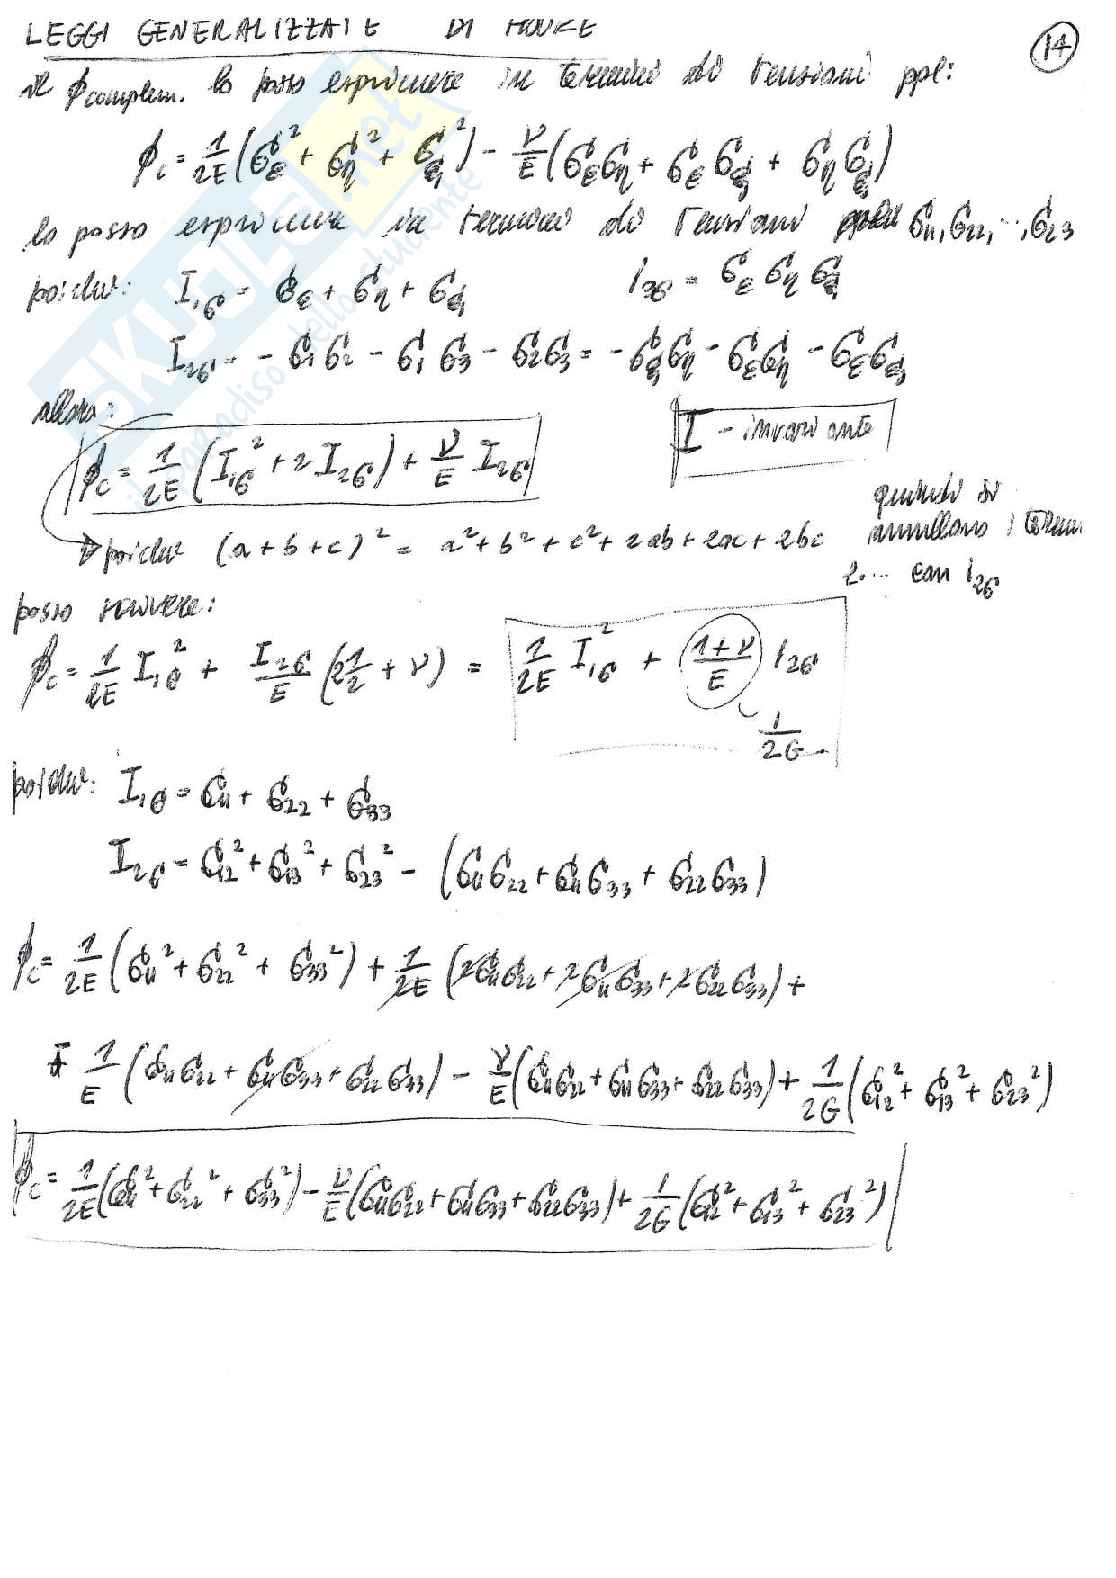 LEGGI GENERALIZZATE DI HOOKE
14
il ϕcomplem. lo posso esprimere in termini di tensioni ppl:
ϕc = 1/2E (σξ² + ση² + σζ²) - ν/E (σξση + σξσζ + σησζ)
lo posso esprimere in termini di tensioni σ11, σ22, ..., σ23
poiche': I1σ = σξ + ση + σζ I3σ = σξ ση σζ
I2σ = - σ1σ2 - σ1σ3 - σ2σ3 = - σζση - σξση - σξσζ
allora:
I - invariante
ϕc = 1/2E (I1σ² + 2 I2σ) + ν/E I2σ
poiche' (a + b + c)² = a² + b² + c² + 2ab + 2ac + 2bc
quindi si
annullano i termini
2... con I2σ
posso scrivere:
ϕc = 1/2E I1σ² + I2σ/E (2 1/2 + ν) = 1/2E I1σ² + (1+ν)/E I2σ
1/2G
poiche': I1σ = σ11 + σ22 + σ33
I2σ = σ12² + σ13² + σ23² - (σ11σ22 + σ11σ33 + σ22σ33)
ϕc = 1/2E (σ11² + σ22² + σ33²) + 1/2E (2σ11σ22 + 2σ11σ33 + 2σ22σ33) +
- 1/E (σ11σ22 + σ11σ33 + σ22σ33) - ν/E (σ11σ22 + σ11σ33 + σ22σ33) + 1/2G (σ12² + σ13² + σ23²)
ϕc = 1/2E (σ11² + σ22² + σ33²) - ν/E (σ11σ22 + σ11σ33 + σ22σ33) + 1/2G (σ12² + σ13² + σ23²)
SKUOLA.net
il paradiso dello studente